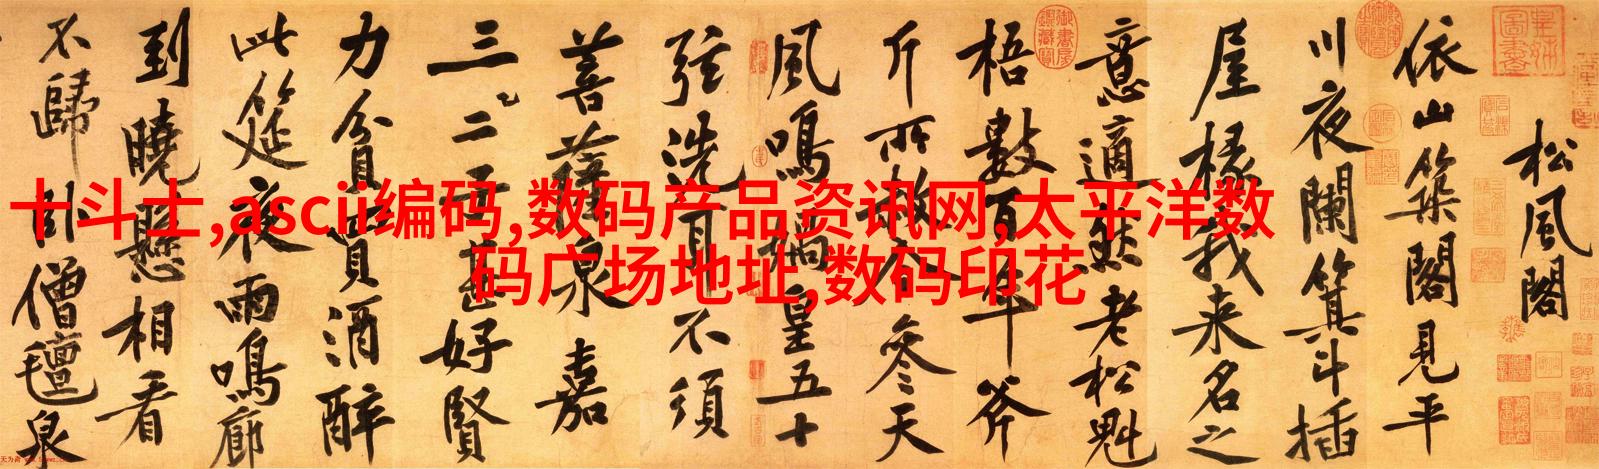 松風閣
依山築閣見平
川夜闌箕斗插
屋椽我来名之
意適然老松魁
梧數百年斧
斤所赦今参天
風鳴媧皇五十
弦洗耳不須
菩薩泉嘉
三二子甚好賢
力貧買酒醉
此筵夜雨鳴廊
到曉懸相看
不歸卧僧氈泉
十斗土,ascii编码,数码产品资讯网,太平洋数
码广场地址,数码印花